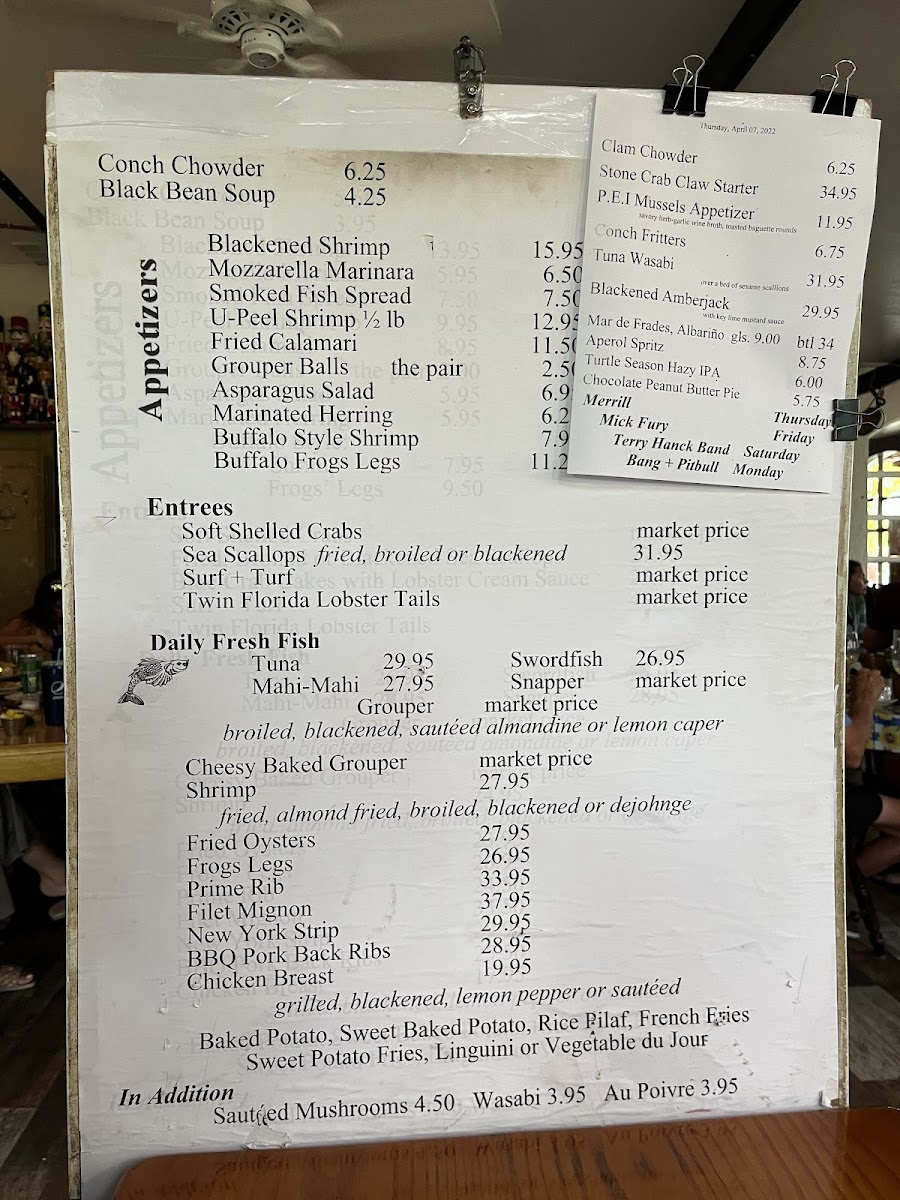 Conch Chowder 6.25
Black Bean Soup 4.25
Appetizers
Blackened Shrimp 15.95
Mozzarella Marinara 6.50
Smoked Fish Spread 7.50
U-Peel Shrimp ½ lb 12.95
Fried Calamari 11.50
Grouper Balls the pair 2.50
Asparagus Salad 6.9
Marinated Herring 6.2
Buffalo Style Shrimp 7.9
Buffalo Frogs Legs 11.2
Thursday, April 07, 2022
Clam Chowder 6.25
Stone Crab Claw Starter 34.95
P.E.I Mussels Appetizer 11.95
savory herb-garlic wine broth, toasted baguette rounds
Conch Fritters 6.75
Tuna Wasabi 31.95
over a bed of sesame scallions
Blackened Amberjack 29.95
with key lime mustard sauce
Mar de Frades, Albariño gls. 9.00 btl 34
Aperol Spritz 8.75
Turtle Season Hazy IPA 6.00
Chocolate Peanut Butter Pie 5.75
Merrill Thursday
Mick Fury Friday
Terry Hanck Band Saturday
Bang + Pitbull Monday
Entrees
Soft Shelled Crabs market price
Sea Scallops fried, broiled or blackened 31.95
Surf + Turf market price
Twin Florida Lobster Tails market price
Daily Fresh Fish
Tuna 29.95 Swordfish 26.95
Mahi-Mahi 27.95 Snapper market price
Grouper market price
broiled, blackened, sautéed almandine or lemon caper
Cheesy Baked Grouper market price
Shrimp 27.95
fried, almond fried, broiled, blackened or dejohnge
Fried Oysters 27.95
Frogs Legs 26.95
Prime Rib 33.95
Filet Mignon 37.95
New York Strip 29.95
BBQ Pork Back Ribs 28.95
Chicken Breast 19.95
grilled, blackened, lemon pepper or sautéed
Baked Potato, Sweet Baked Potato, Rice Pilaf, French Fries
Sweet Potato Fries, Linguini or Vegetable du Jour
In Addition
Sautéed Mushrooms 4.50 Wasabi 3.95 Au Poivre 3.95